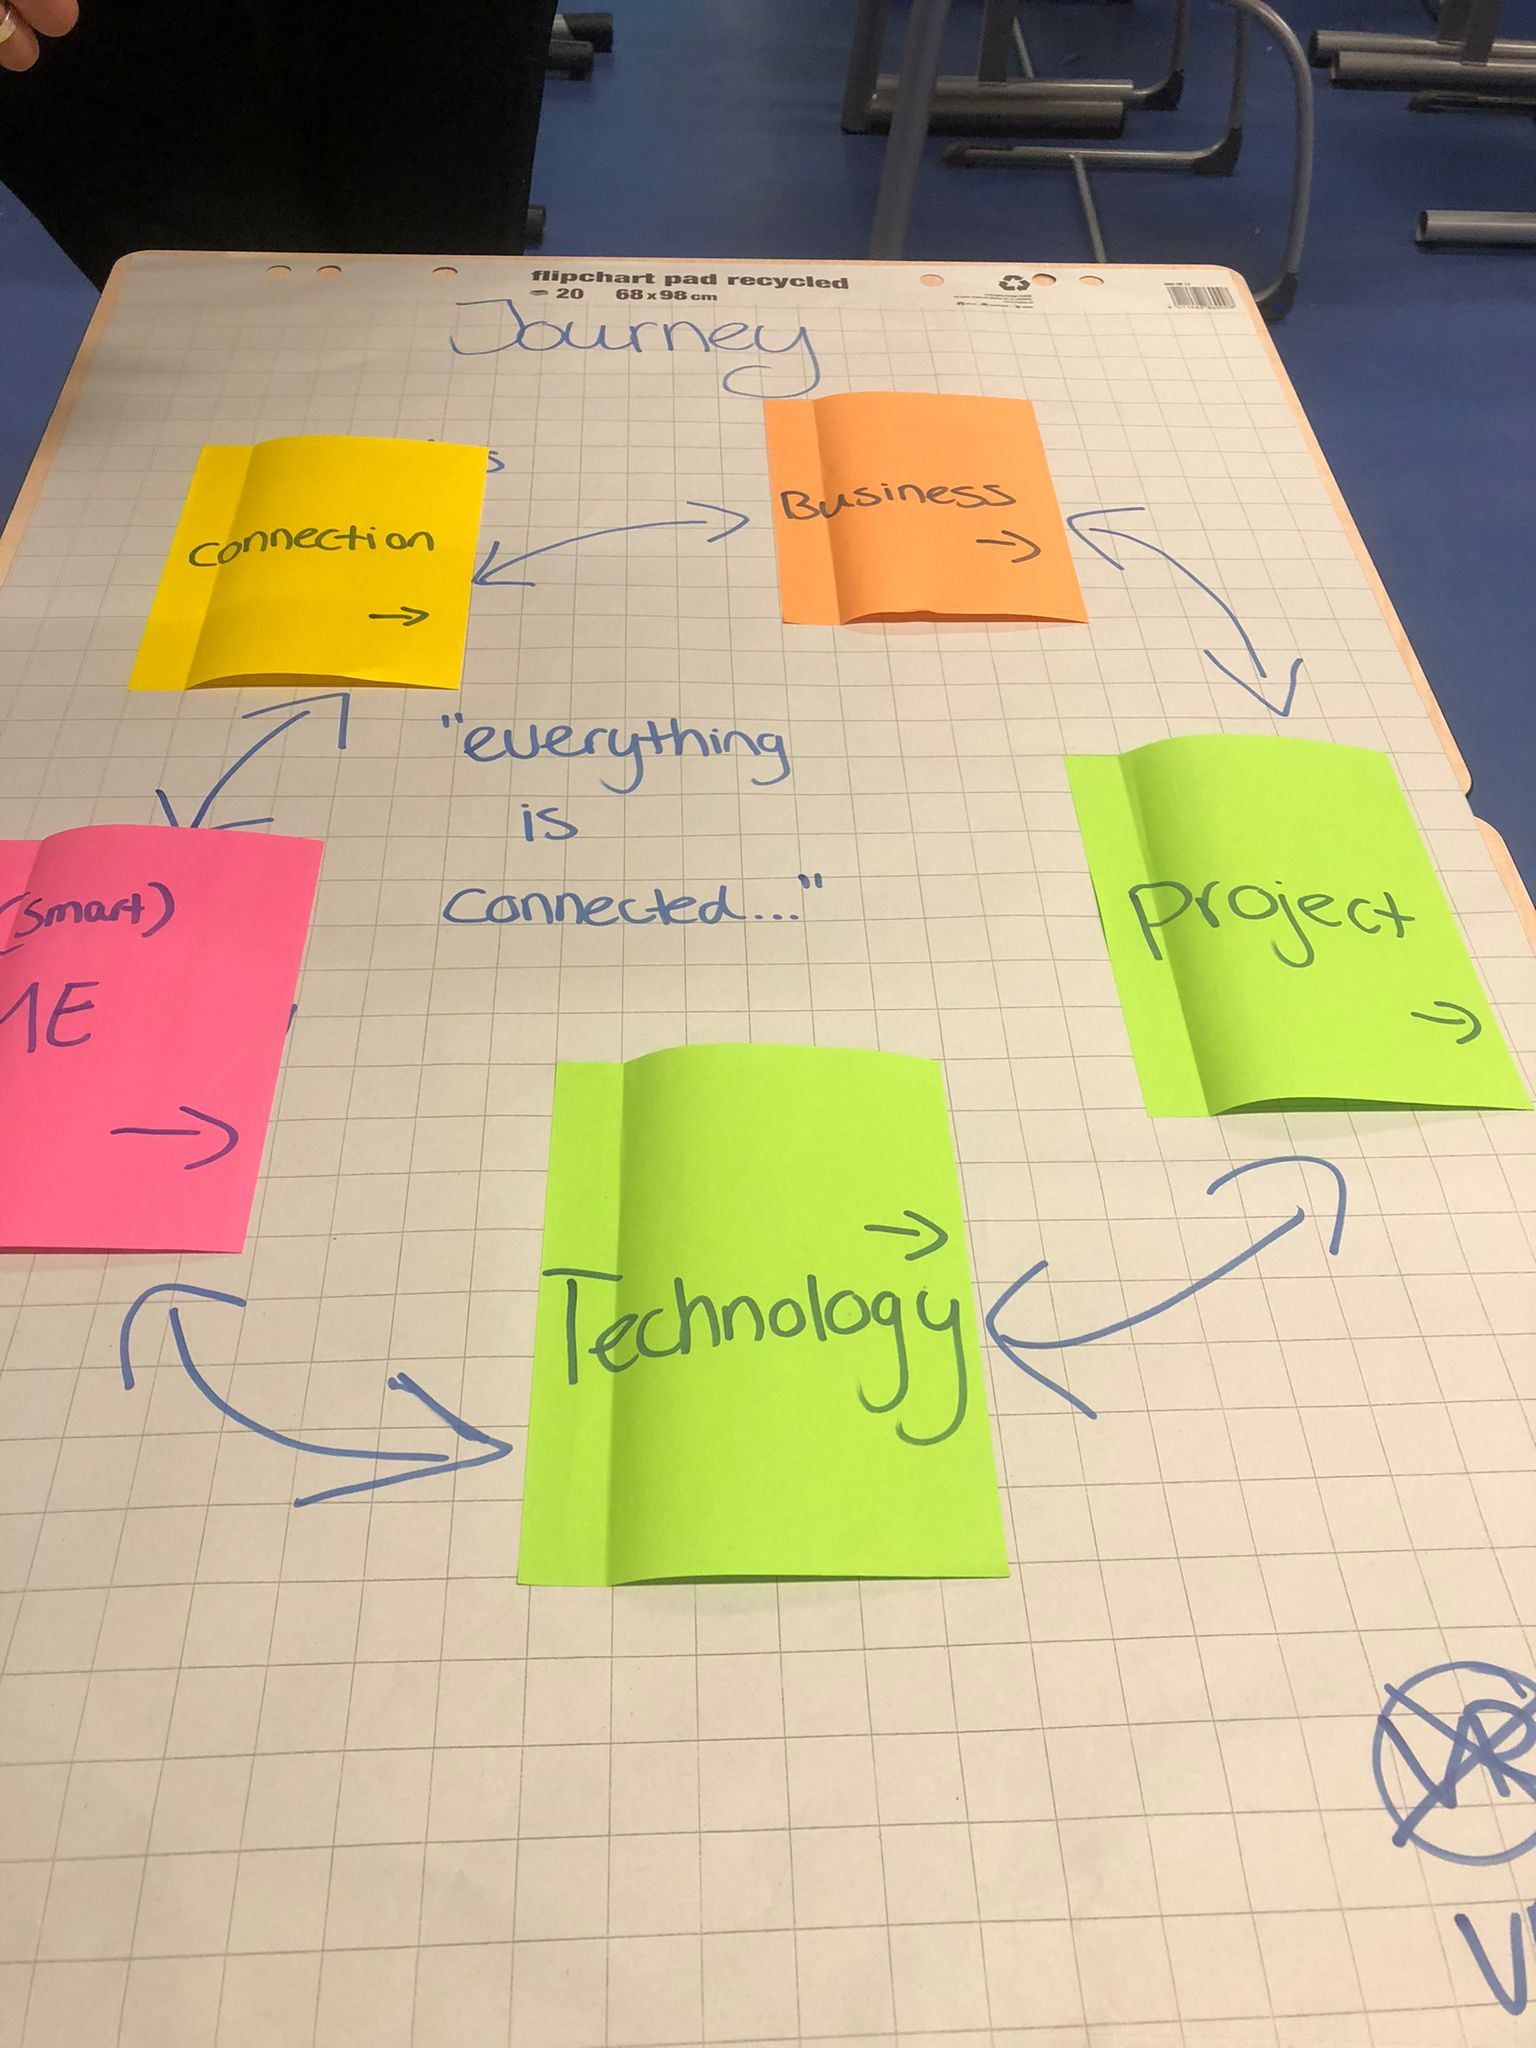 flipchart pad recycled
20 68x98cm
Journey
Connection
→
Business
→
"everything
is
connected..."
(Smart)
ME
→
Project
→
→
Technology
VR